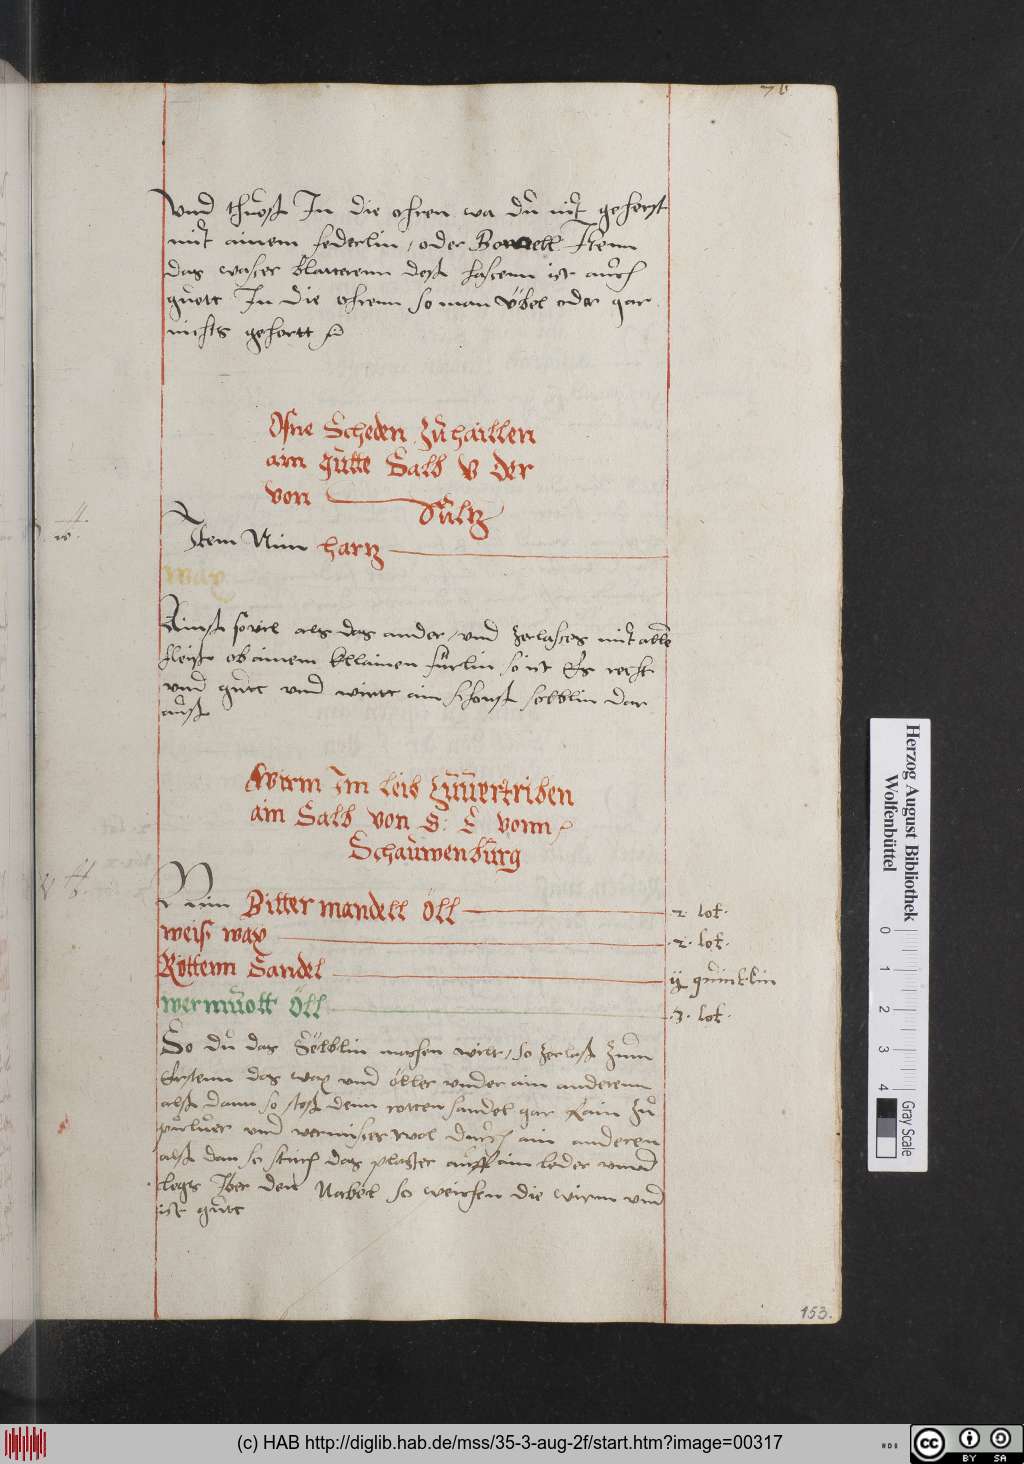 Vnd thuost In die ohren wa du nit geherst
mit ainem federlin / oder Bawell Item
das wasser blatterenn dess hassenn ist auch
guott In die ohrenn so man übel oder gar
nichts gehortt
Ohne Scheden zu haillen
ain gutte Salb V der
von Sultz
Item Nim hartz
wax
Ainss sovil als das ander / vnd zerlasses mit allem
fleiss ob ainem kllainen fürlin so ist Es recht
vnd gutt vnd wirtt ain schonss selblin dar
auss
Wirm Im leib zuuertriben
ain Salb von S: C vonn
Schauwenburg
Nim Bitter mandell öll 2 lot.
weis wax .2. lot.
Rottenn Sandel ij quinttlin
wermuott öll .3. lot.
So du das Selblin machen wilt / so zerlass zum
Erstenn das wax vnd öller vnder ain anderenn
alss dann so stoss denn rotten sandel gar klain zu
puluer vnd vermisses wol durch ain anderen
alss dan so streich das plaster auff ain leder vnnd
legs Iber den Nabel so weichen die wirm vnd
ist gutt
153.
Herzog August Bibliothek
Wolfenbüttel
0 1 2 3 4
Gray Scale
(c) HAB http://diglib.hab.de/mss/35-3-aug-2f/start.htm?image=00317
HAB
cc BY SA